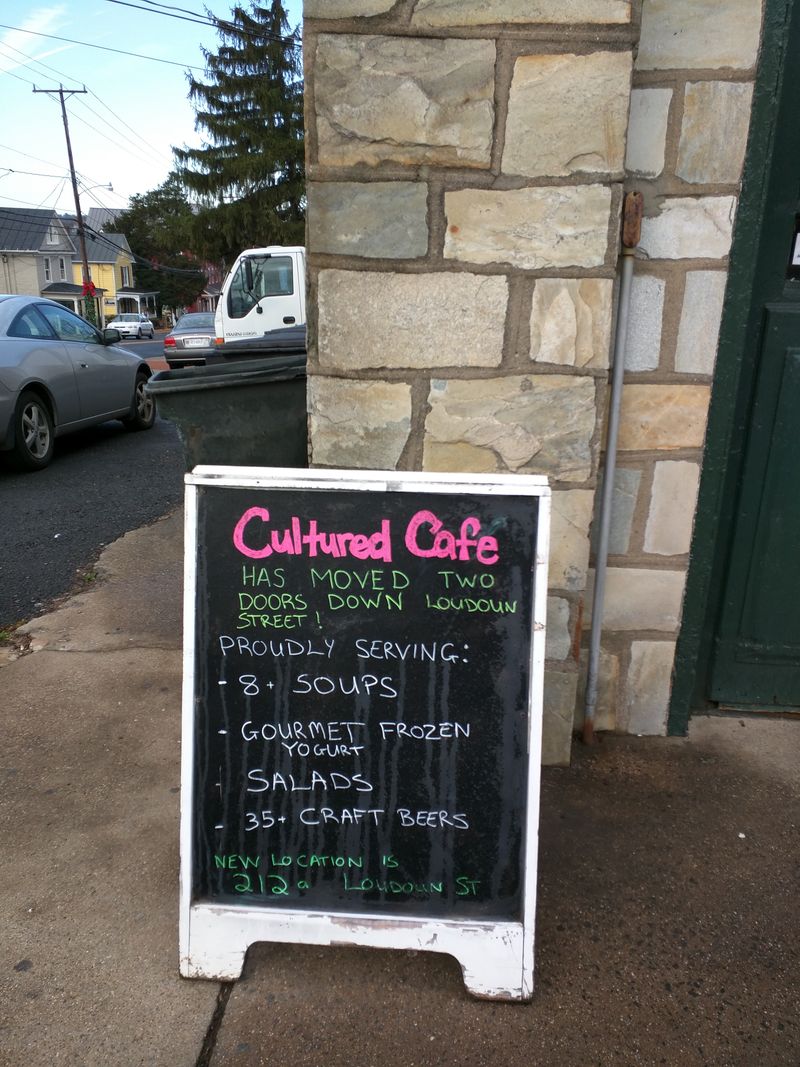 Cultured Café
HAS MOVED TWO
DOORS DOWN LOUDOUN
STREET!
PROUDLY SERVING:
- 8+ SOUPS
- GOURMET FROZEN
YOGURT
- SALADS
- 35+ CRAFT BEERS
NEW LOCATION IS
212a LOUDOUN ST